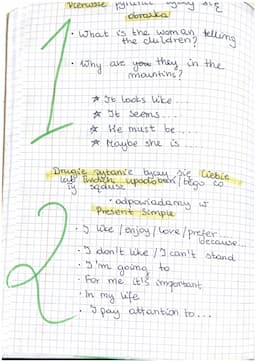 Pierwsze pytanie tyczy się
obrazka
• What is the woman telling
the children?
• Why are they in the
mauntins?
★ It looks like...
★ It seems...
★ He must be...
★ Maybe she is...
1
Drugie pytanie tyczy się Ciebie
lub innych upodobań / tego co
ty sądzisz
• odpowiadamy w
Present Simple
2
• I like / enjoy / love / prefer...
because...
• I don't like / I can't stand
• I'm going to
• For me it's important
• In my life
• I pay attantion to...